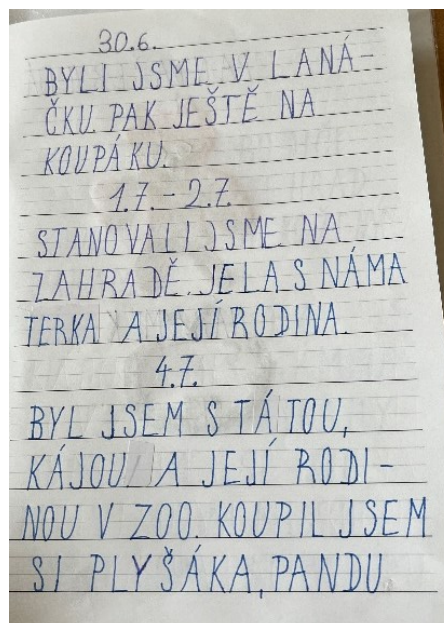 30.6.
BYLI JSME V LANÁ-
ČKU. PAK JEŠTĚ NA
KOUPÁKU.
1.7. - 2.7.
STANOVALI JSME NA
ZAHRADĚ. JELA S NÁMA
TERKA A JEJÍ RODINA.
4.7.
BYL JSEM S TÁTOU,
KÁJOU A JEJÍ RODI-
NOU V ZOO. KOUPIL JSEM
SI PLYŠÁKA, PANDU